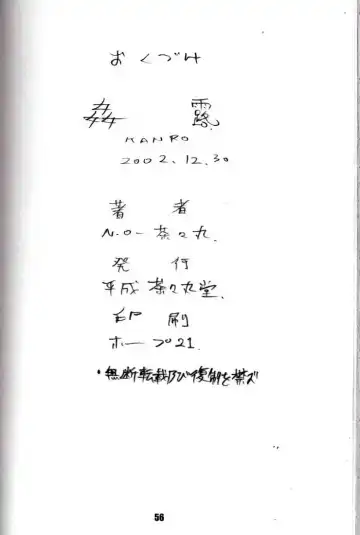 おくづけ
姦 露
KANRO
2002.12.30
著 者
N.O-茶々丸.
発 行
平成茶々丸堂.
印 刷
ホープ21.
・無断転載及び複製を禁ズ
56